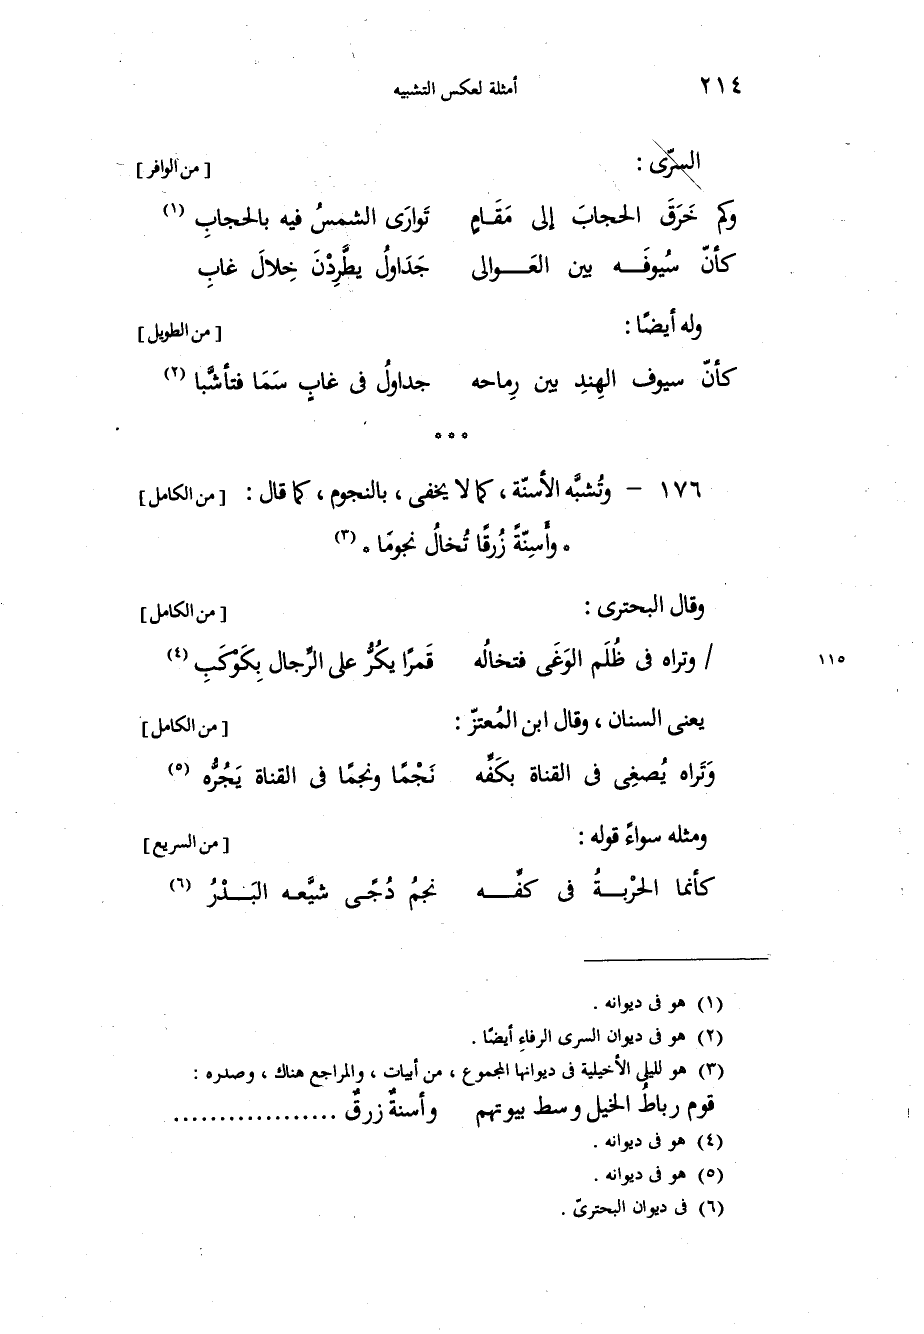 ٢١٤ أمثلة لعكس التشبيه
السرّى : [ من الوافر ]
وكم خَرَقَ الحجابَ إلى مَقَـامٍ تَوارَى الشمسُ فيه بالحجابِ (١)
كأنّ سُيوفَــه بين العَــوالى جَدَاولُ يطَّرِدْنَ خِلالَ غابِ
وله أيضًا : [ من الطويل ]
كأنّ سيوف الهِندِ بين رِماحه جداولُ فى غابٍ سَمَا فتأشَّبا (٢)
* * *
١٧٦ – وتُشبَّه الأسنّة ، كما لا يخفى ، بالنجوم ، كما قال : [ من الكامل ]
* وأَسِنّةً زُرقًا تُخالُ نجومَا * (٣)
وقال البحترى : [ من الكامل ]
/ وتراه فى ظُلَم الوَغَى فتخالُه قَمرًا يكُرُّ على الرِّجال بِكَوْكَبِ (٤) ١١٥
يعنى السنان ، وقال ابن المُعتزّ : [ من الكامل ]
وَتَراه يُصغِى فى القناة بكَفِّه نَجْمًا ونجمًا فى القناة يَجُرُّه (٥)
ومثله سواءً قوله : [ من السريع ]
كأنما الحَرْبــةُ فى كفِّــه نجمُ دُجًـى شيَّعـه البَــدْرُ (٦)
(١) هو فى ديوانه .
(٢) هو فى ديوان السرى الرفاءِ أيضًا .
(٣) هو لليلى الأخيلية فى ديوانها المجموع ، من أبيات ، والمراجع هناك ، وصدره :
قوم رباطُ الخيل وسط بيوتهم وأسنةٌ زرقٌ ..................
(٤) هو فى ديوانه .
(٥) هو فى ديوانه .
(٦) فى ديوان البحترىّ .